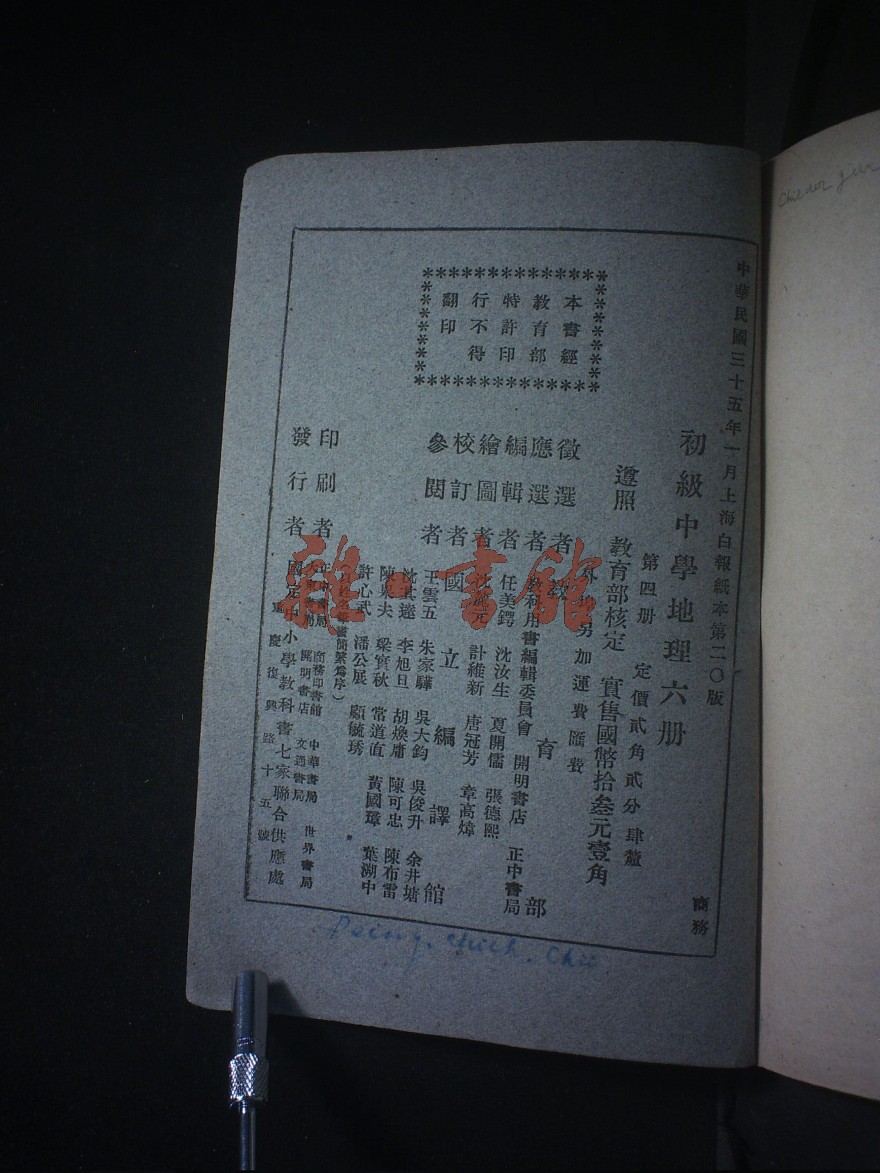 中華民國三十五年一月上海白報紙本第二〇版
初級中學地理六册
商務
第四册 定價貳角貳分肆釐
遵照 教育部核定 實售國幣拾叁元壹角
外 另加運費匯費
徵選者 教育部
應選者 利用書編輯委員會 開明書店 正中書局
編輯者 任美鍔 沈汝生 夏開儒 張德熙
繪圖者 計維新 唐冠芳 章高煒
校訂者 國立編譯館
參閱者 王雲五 朱家驊 吳大鈞 吳俊升 余井塘
李旭旦 胡煥庸 陳可忠 陳布雷
陳果夫 梁實秋 常道直 黃國璋 葉湖中
許心武 潘公展 顧毓琇
簡繁爲序)
印刷者
商務印書館 中華書局 世界書局
開明書店 文通書局
發行者 國定中小學教科書七家聯合供應處
重慶復興路十五號
本書經
教育部
特許印
行不得
翻印
雜·書館
Chieh. Chu